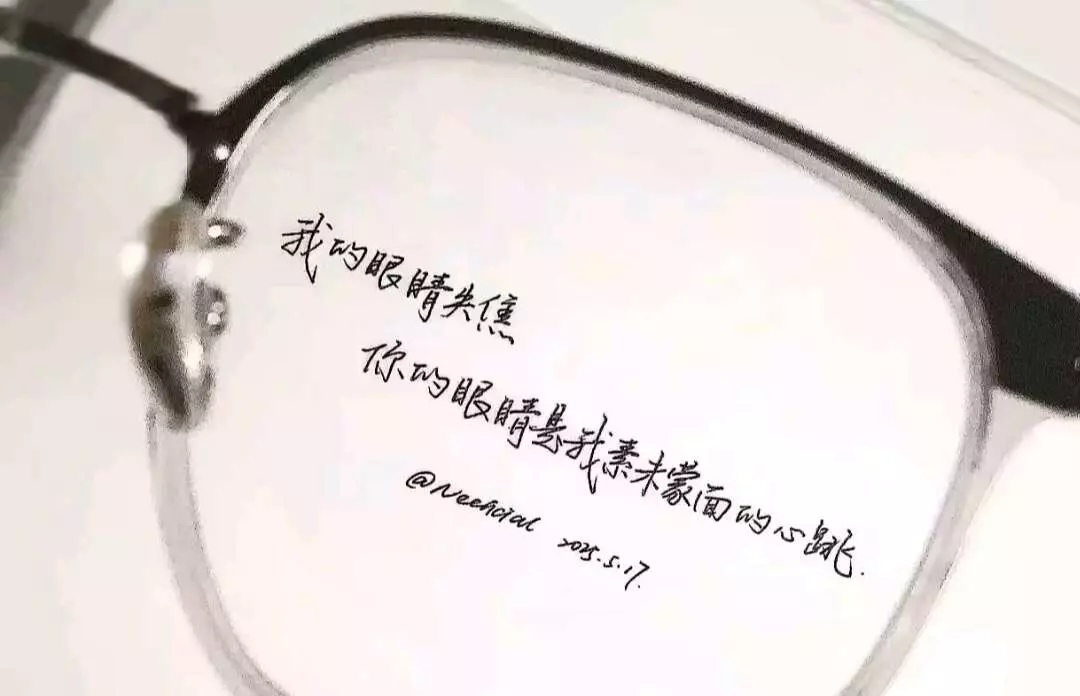 我的眼睛失焦
你的眼睛是我素未蒙面的心跳.
@Neeacial 2025.5.17.